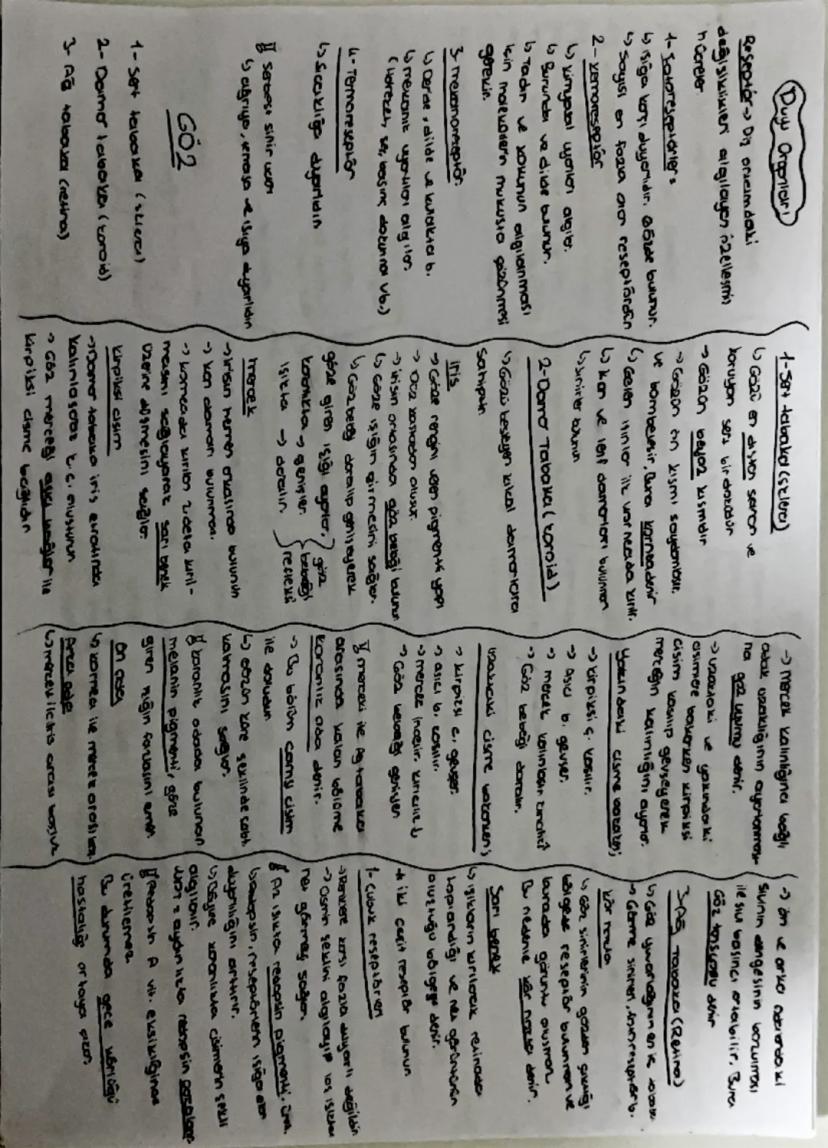 Duyu Organları
Reseptör → Dış ortamdaki
değişiklikleri algılayan özelleşmiş
hücreler.
1- Fotoreseptörler
↳ Işığa karşı duyarlıdır. Gözde bulunur.
↳ Sayısı en fazla olan reseptördür
2- Kemoreseptör
↳ Kimyasal uyarıları algılar.
↳ Burunda ve dilde bulunur.
↳ Tadın ve kokunun algılanması
için moleküllerin mukusta çözünmesi
gerekir.
3- mekanoreseptör
↳ Deride, dilde ve kulakta b.
↳ mekanik uyarıları algılar.
(Hareket, ses, basınç dokunma vb.)
4- Termoreseptör
↳ Sıcaklığa duyarlıdır
Serbest sinir ucu
↳ ağrıya, ısıya ve ışığa duyarlıdır
GÖZ
1- Sert tabaka (sklera)
2- Damar tabaka (koroid)
3- Ağ tabaka (retina)
1- Sert tabaka (sklera)
↳ Gözü en dıştan saran ve
koruyan sert bir dokudur
→ Gözün beyaz kısmıdır
→ Gözün ön kısmı saydamlaşır
ve bombeleşir. Buna kornea denir
↳ Gelen ışınlar ilk kornea kırılır.
↳ Kan ve lenf damarları bulunmaz
↳ sinirler bulunur
2- Damar Tabaka (koroid)
→ Gözü besleyen kılcal damarlara
sahiptir
iris
→ Göze rengini veren pigmentli yapı
→ Düz kaslardan oluşur.
→ irisin ortasında göz bebeği bulunur
↳ Göze ışığın girmesini sağlar.
↳ Göz bebeği daralıp genişleyerek
göze giren ışığı ayarlar.
karanlıkta → genişler
ışıkta → daralır.
göz
bebeği
refleksi
mercek
→ irisin hemen arkasında bulunur
→ Kan damarı bulunmaz.
→ korneada kırılan 2. defa kırıl-
masını sağlayarak sarı benek
üzerine düşmesini sağlar
kirpiksi cisim
→ Damar tabaka iris etrafında
kalınlaşarak k.c. oluşturur
→ Göz merceği asıcı bağlar ile
kirpiksi cisme bağlıdır
→ mercek kalınlığına bağlı
odak uzaklığının ayarlanması-
na göz uyumu denir.
→ uzaktaki ve yakındaki
cisimlere bakarken kirpiksi
cisim kasılıp gevşeyerek
merceğin kalınlığını ayarlar.
yakındaki cisme bakarken;
→ kirpiksi c. kasılır.
→ asıcı b. gevşer.
→ mercek kalınlaşır
→ Göz bebeği daralır.
uzaktaki cisme bakarken;
→ kirpiksi c. gevşer.
→ asıcı b. kasılır.
→ mercek incelir.
→ Göz bebeği genişler
mercek ile ağ tabaka
arasında kalan bölüme
karanlık oda denir.
→ Bu bölüm camsı cisim
ile doludur
↳ gözün küre şeklinde
kalmasını sağlar.
karanlık odada bulunan
melanin pigmenti, göze
giren ışığın fazlasını emer.
Ön oda
↳ kornea ile mercek arası
Arka oda
↳ mercek iris arası boşluk
→ ön ve arka odadaki
sıvının dengesinin bozulması
ile sıvı basıncı artabilir. Buna
Göz tansiyonu denir
3- Ağ Tabaka (Retina)
↳ Göz yuvarlağının en iç
→ Görme sinirleri,
kör nokta
↳ Göz sinirlerinin gözden çıktığı
bölgede reseptör bulunmaz ve
burada görüntü oluşmaz
Bu nedenle kör nokta denir.
Sarı benek
↳ ışıkların kırılarak retinada
toplandığı ve net görüntünün
oluştuğu bölgeye denir.
* iki çeşit reseptör bulunur
1- Çubuk reseptörleri
→ Renklere karşı fazla duyarlı değildir
→ Cismin şeklini algılayıp loş ışıkta
görmeyi sağlar.
Az ışıkta rodopsin pigmenti
↳ Rodopsin, reseptörlerin ışığa olan
duyarlılığını arttırır.
↳ Böylece karanlıkta cisimlerin şekli
algılanır.
aydınlıkta rodopsin
Rodopsin A vit. eksikliğinde
üretilemez
Bu durumda gece körlüğü
hastalığı ortaya çıkar.